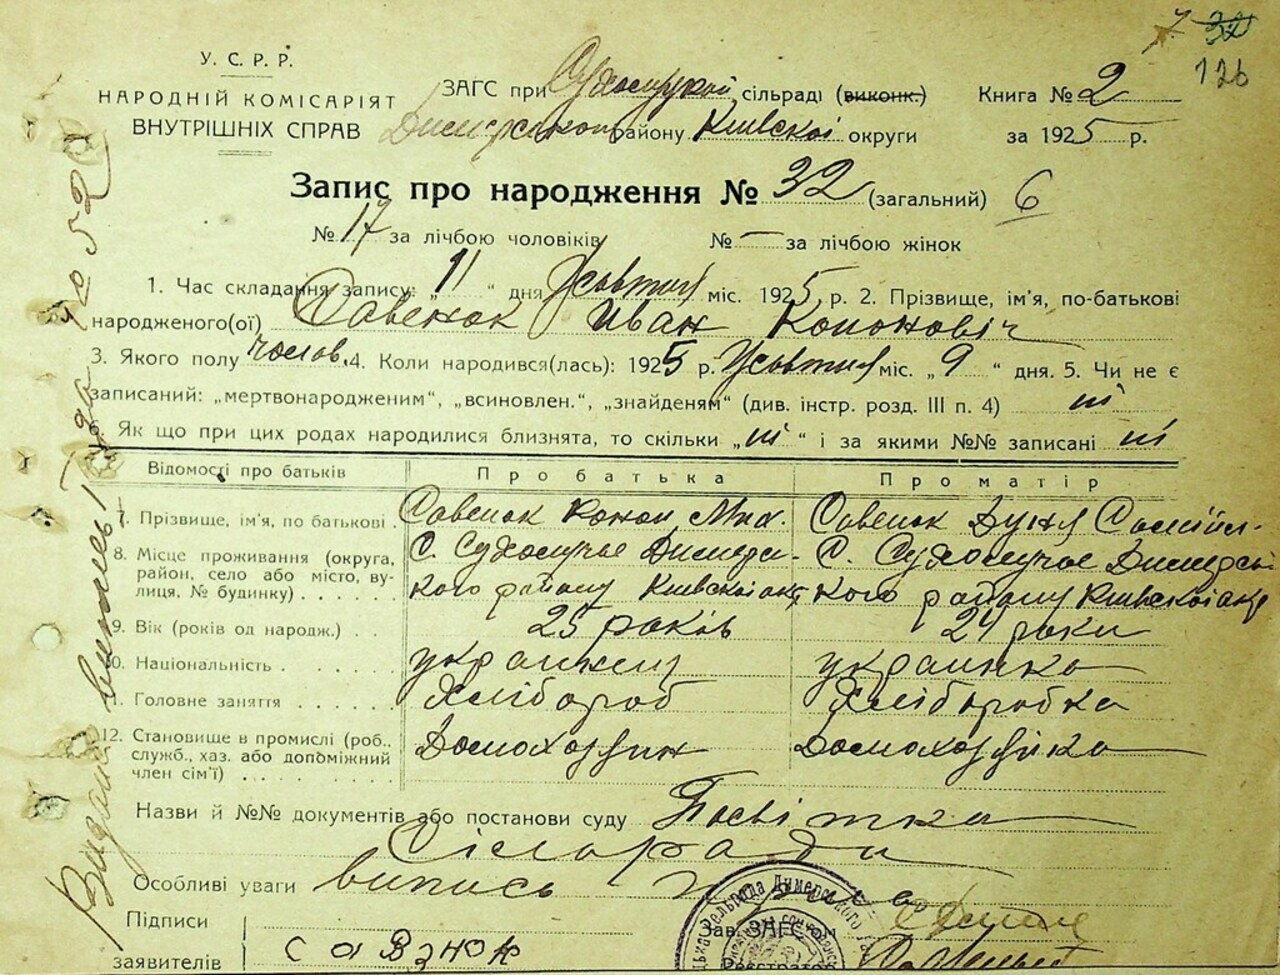 126
У. С. Р. Р.
НАРОДНІЙ КОМІСАРІЯТ
ВНУТРІШНІХ СПРАВ
ЗАГС при Сухолуцкой сільраді (виконк.) Книга № 2
району Київскоі округи за 1925 р.
Запис про народження № 32 (загальний) 6
№ 17 за лічбою чоловіків № — за лічбою жінок
1. Час складання запису: „ 11 “ дня Жовтня міс. 1925 р. 2. Прізвище, ім'я, по-батькові
народженого(ої) Савенок Иван Кононовіч
3. Якого полу чолов. 4. Коли народився(лась): 1925 р. Жовтня міс. „ 9 “ дня. 5. Чи не є
записаний: „мертвонародженим“, „всиновлен.“, „знайденям“ (див. інстр. розд. III п. 4) ні
6. Як що при цих родах народилися близнята, то скільки „ ні “ і за якими №№ записані ні
Відомості про батьків Про батька Про матір
7. Прізвище, ім'я, по батькові Савенок Конон Мих. Савенок Дуня Самійл-
8. Місце проживання (округа, С. Сухолучье Димерс- С. Сухолучье Димерсь
район, село або місто, ву-
лиця, № будинку) кого району Київскоі окр кого району Київскоі окр
9. Вік (років од народж.) 25 років 24 роки
10. Національність украинец украинка
11. Головне заняття Хлібороб Хліборобка
12. Становище в промислі (роб., Домохозяин Домохозяйка
служб., хаз. або допоміжний
член сім'ї)
Назви й №№ документів або постанови суду Посвітка
Сільради
Особливі уваги випись
Підписи
заявителів саВэнок
Зав. ЗАГС'ом
Реєстратор